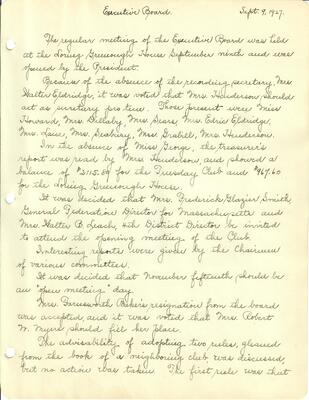 Executive Board. Sept. 9, 1927.
The regular meeting of the Executive Board was held
at the Loring Greenough House September ninth and was
opened by the President.
Because of the absence of the recording secretary, Mrs.
Walter Eldridge, it was voted that Mrs. Henderson should
act as secretary pro tem. Those present were Miss
Howard, Mrs. Mrs. Sears, Mrs. Edric Eldridge,
Mrs. Mrs. Seabury, Mrs. Mrs. Henderson.
In the absence of Miss George, the treasurer's
report was read by Mrs. Henderson, and showed a
balance of for the Tuesday Club and $467.60
for the Loring Greenough House.
It was decided that Mrs. Frederick Glazier Smith,
General Federation Director for Massachusetts and
Mrs. Walter B. Leach, 4th District Director be invited
to attend the opening meeting of the Club.
Interesting reports were given by the Chairmen
of various committees.
It was decided that November fifteenth should be
an "open meeting" day.
Mrs. Farnsworth Baker's resignation from the board
was accepted and it was voted that Mrs. Robert
W. Myers should fill her place.
The advisability of adopting two rules, gleaned
from the book of a neighboring club, was discussed,
but no action was taken. The first rule was that